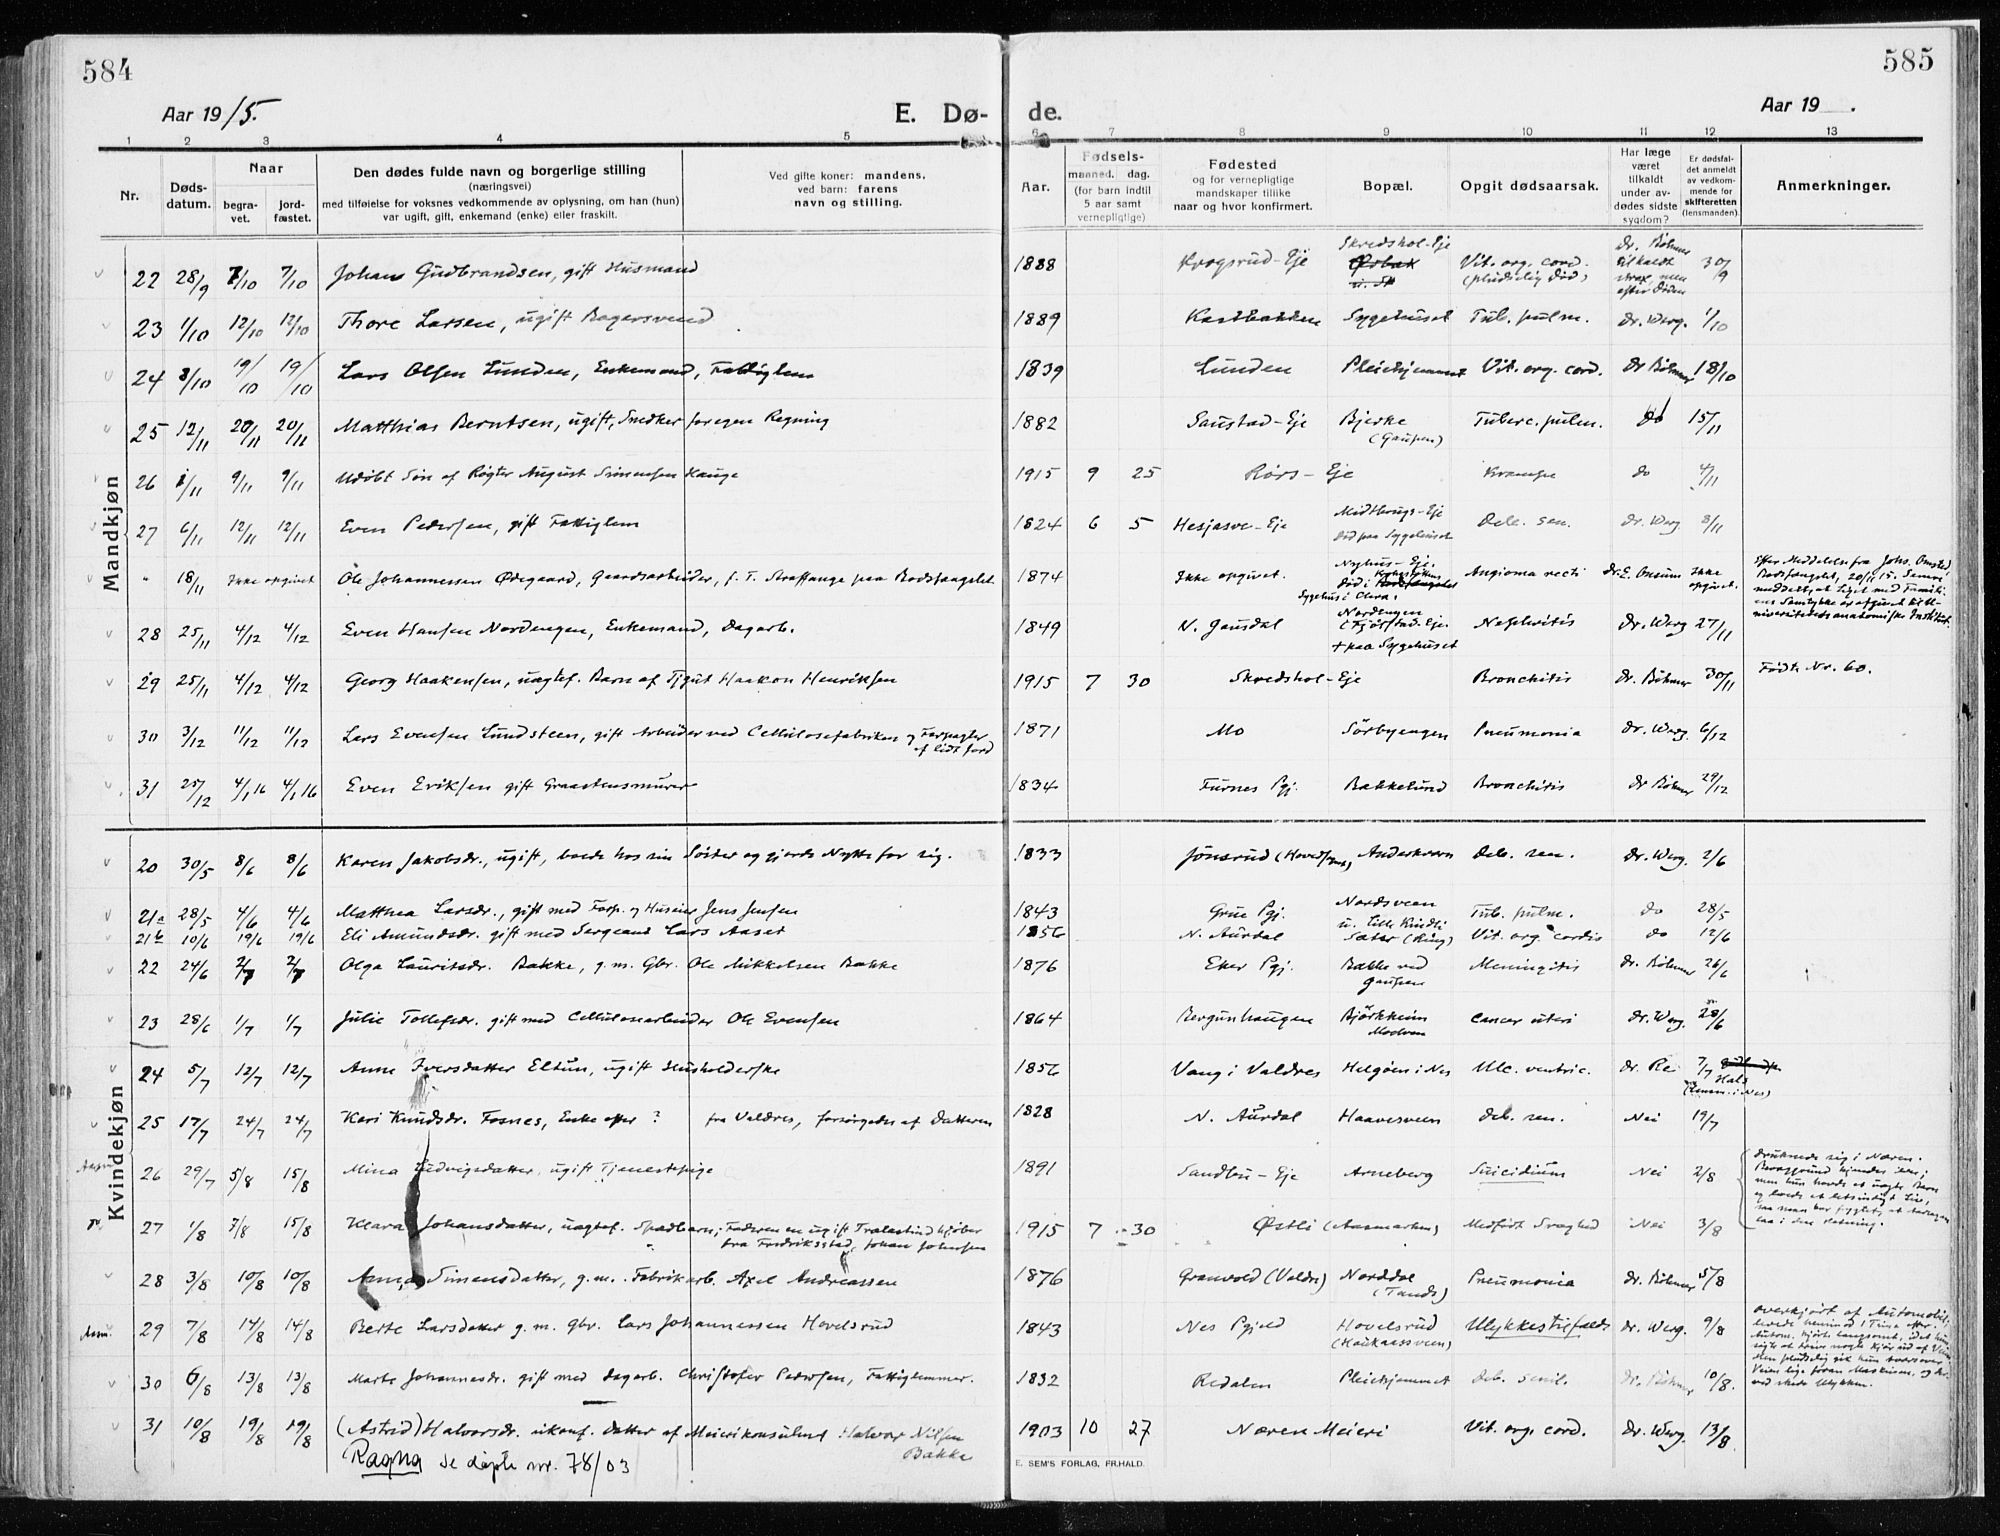 584
585
Aar 1915.
E. Dø-
de.
Aar 19 .
1 2 3 4 5 6 7 8 9 10 11 12 13
Nr.
Døds-
datum.
Naar
begra-
vet.
jord-
fæstet.
Den dødes fulde navn og borgerlige stilling
(næringsvei)
med tilføielse for voksnes vedkommende av oplysning, om han (hun)
var ugift, gift, enkemand (enke) eller fraskilt.
Ved gifte koner: mandens,
ved barn: farens
navn og stilling.
Aar.
Fødsels-
maaned. dag.
(for barn indtil
5 aar samt
vernepligtige)
Fødested
og for vernepligtige
mandskaper tillike
naar og hvor konfirmert.
Bopæl.
Opgit dødsaarsak.
Har læge
været
tilkaldt
under av-
dødes sidste
sygdom?
Er dødsfal-
det anmeldt
av vedkom-
mende for
skifteretten
(lensmanden).
Anmerkninger.
Mandkjøn
22 28/9 7/10 7/10 Johan Gudbrandsen, gift Husmand 1888 Krogsrud-Eje Skredshol-Eje Vit. org. cord. (pludselig Død) dr. Böhmer tilkaldt strax, men efter Døden 30/9
23 1/10 12/10 12/10 Thore Larsen, ugift Bagersvend 1889 Kastbakken Sygehuset Tub. pulm. dr. Werg. 1/10
24 8/10 19/10 19/10 Lars Olsen Lunden, Enkemand, Fattiglem 1839 Lunden Pleiehjemmet Vit. org. cord. dr Böhmer 18/10
25 12/11 20/11 20/11 Matthias Berntsen, ugift, Snedker for egen Regning 1882 Saustad-Eje Bjerke (Gaupen) Tuberc. pulm. do 15/11
26 1/11 9/11 9/11 Udöbt Sön af Røgter August Simensen Hauge 1915 9 25 Rørs-Eje Krampe do 4/11
27 6/11 12/11 12/11 Even Pedersen, gift Fattiglem 1824 6 5 Hesjasve-Eje Midthaugs-Eje Død paa Sygehuset Deb. sen. dr. Werg 8/11
" 18/11 Ikke opgivet Ole Johannessen Ødegaard, Gaardsarbeider, f. T. Straffange paa Bodsfængslet 1874 Ikke opgivet. Nyhus-Eje. Død i Sygehus i Angioma recti dr. E. Onsum Ikke opgivet. Efter Meddelelse fra Johs. Onsted, Bodsfængslet, 20/11 15. Samme meddelt, at Liget med Famili- ens Samtykke er afgivet til U- niversitetets anatomiske Institut.
28 25/11 4/12 4/12 Even Hansen Nordengen, Enkemand, Dagarb. 1849 N. Gausdal Nordengen (Fjölstad-Eje. + paa Sygehuset Nephritis dr. Werg 27/11
29 25/11 4/12 4/12 Georg Haakensen, uægtef. Barn af Tjgut Haakon Henriksen 1915 7 30 Skredshol-Eje Bronchitis dr. Böhmer 30/11 Födte Nr. 60.
30 3/12 11/12 11/12 Lars Evensen Lundsteen, gift Arbeider ved Cellulosefabriken og Forpagter af lidt Jord 1871 Mo Sörbyengen Pneumonia dr. Werg. 6/12
31 25/12 4/1 16 4/1 16 Even Eriksen gift Graastensmurer 1834 Furnes Pgj. Bakkelund Bronchitis dr Böhmer 29/12
Kvindekjøn
20 30/5 8/6 8/6 Karen Jakobsdr., ugift, boede hos sin Söster og gjorde Nytte for sig. 1833 Jönsrud Deb. sen. dr. Werg. 2/6
21a 28/5 4/6 4/6 Matthea Larsdr., gift med Forp. og Huseier Jens Jensen 1843 Grue Pgj. Nordsveen u. Lille Kindli Tub. pulm. do 28/5
21b 10/6 19/6 19/6 Eli Amundsdr. gift med Sergeant Lars Aaset 1856 N. Aurdal Sæter (Ring) Vit. org. cordis do 12/6
22 24/6 2/7 2/7 Olga Lauritsdr. Bakke, g. m. Gbr. Ole Mikkelsen Bakke 1876 Eker Pgj. Bakke ved Gaupen Meningitis dr. Böhmer 26/6
23 28/6 1/7 1/7 Julie Tollefsdr. gift med Cellulosearbeider Ole Evensen 1864 Bergunhaugen Björkheim Moelven Cancer uteri dr. Werg. 28/6
24 5/7 12/7 12/7 Anne Iversdatter Eltun, ugift Husholderske 1856 Vang i Valdres Helgöen i Nes Ulc. ventric. dr. Re 7/7 Hals (Lensm. i Nes)
25 17/7 24/7 24/7 Kari Knudsdr. Fosnes, Enke efter ? fra Valdres, forsörgedes af Datteren 1828 N. Aurdal Haavesveen deb. sen. Nei 19/7
26 29/7 5/8 15/8 Mina Ludvigsdatter, ugift Tjenestepige 1891 Sandbu-Eje Arneberg Suicidium Nei 2/8 druknede sig i Næren. Bevæggrund kjendes ikke; men hun havde et uægte Barn og levede et letsindigt Liv,
27 1/8 7/8 15/8 Klara Johansdatter, uægtef. Spædbarn; Faderen en ugift Trælastindkjøber fra Fredriksstad, Johan Johnsen 1915 7 30 Østli (Aasmarken) Medfödt Svaghed Nei 3/8
28 3/8 10/8 10/8 Anna Simensdatter, g. m. Fabrikarb. Axel Andreassen 1876 Granvold (Valdrs) Norddal (Tande) Pneumonia dr. Böhmer 5/8
29 7/8 14/8 14/8 Berte Larsdatter g. m. Gbr. Lars Johannessen Hovelsrud 1843 Nes Pgjeld Hovelsrud (Haukaasveen) Ulykkestilfælde dr. Werg. 9/8 overkjört af Automobil; levede henimod 1 Time efter. Autom. kjörte langsomt, idet hun Men pludselig gik hun tversover Veien lige foran Maskinen, og der- ved skede Ulykken.
30 6/8 13/8 13/8 Marte Johannesdr. gift med dagarb. Christofer Pedersen, Fattiglemmer. 1832 Redalen Pleiehjemmet deb. senil. dr. Böhmer 10/8.
31 10/8 19/8 19/8 (Astrid) Halvorsdr. ukonf. datter af Meierikonsulent Halvor Nilsen Bakke 1903 10 27 Næren Meieri Vit. org. cord. dr. Werg. 13/8
Ragna se döpte nr. 78/03
E. SEM'S FORLAG, FR.HALD.